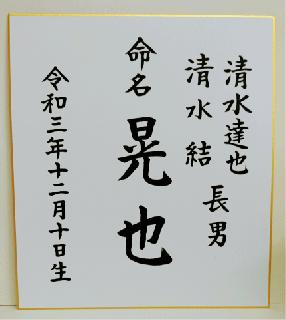 清水達也
清水結
長男
命名 晃也
令和三年十二月十日生